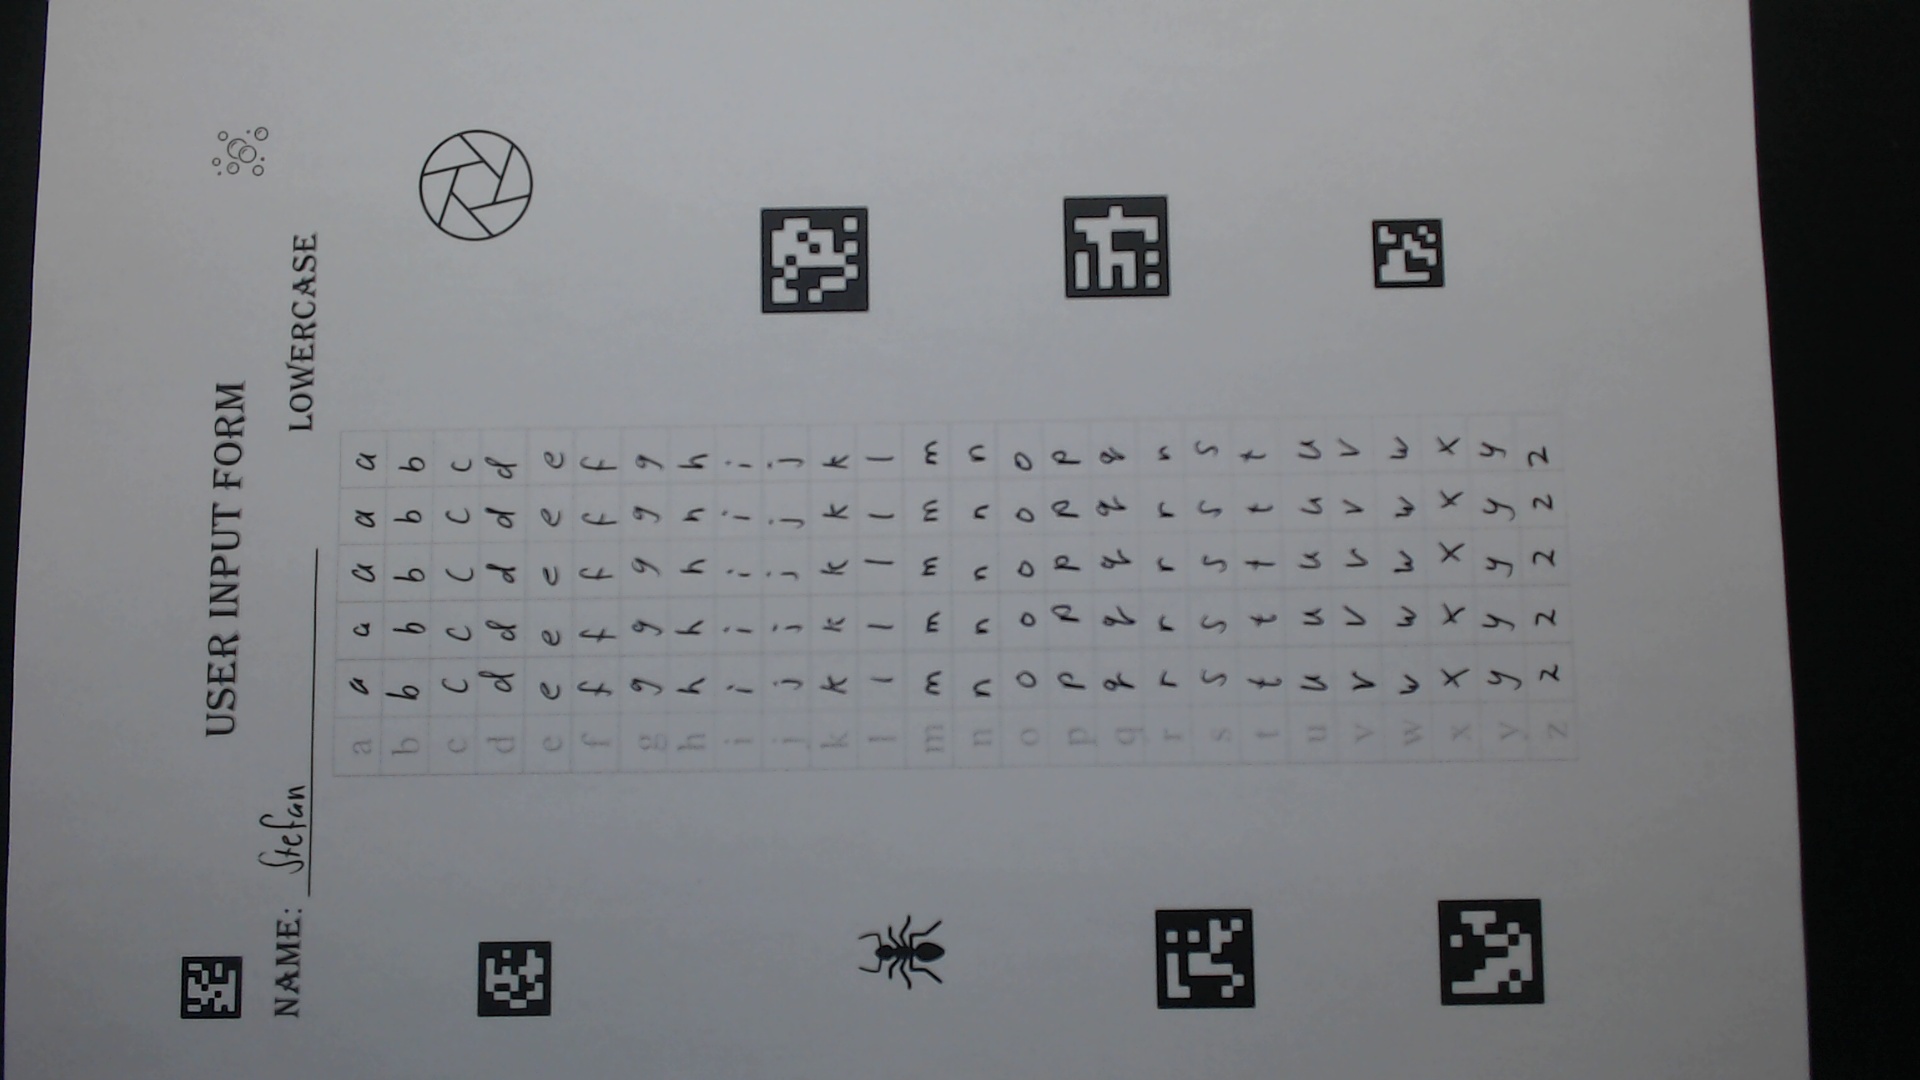 USER INPUT FORM
NAME: Stefan
LOWERCASE
a a a a a a
b b b b b b
c c c c c c
d d d d d d
e e e e e e
f f f f f f
g g g g g g
h h h h h h
i i i i i i
j j j j j j
k k k k k k
l l l l l l
m m m m m m
n n n n n n
o o o o o o
p p p p p p
q q q q q q
r r r r r r
s s s s s s
t t t t t t
u u u u u u
v v v v v v
w w w w w w
x x x x x x
y y y y y y
z z z z z z